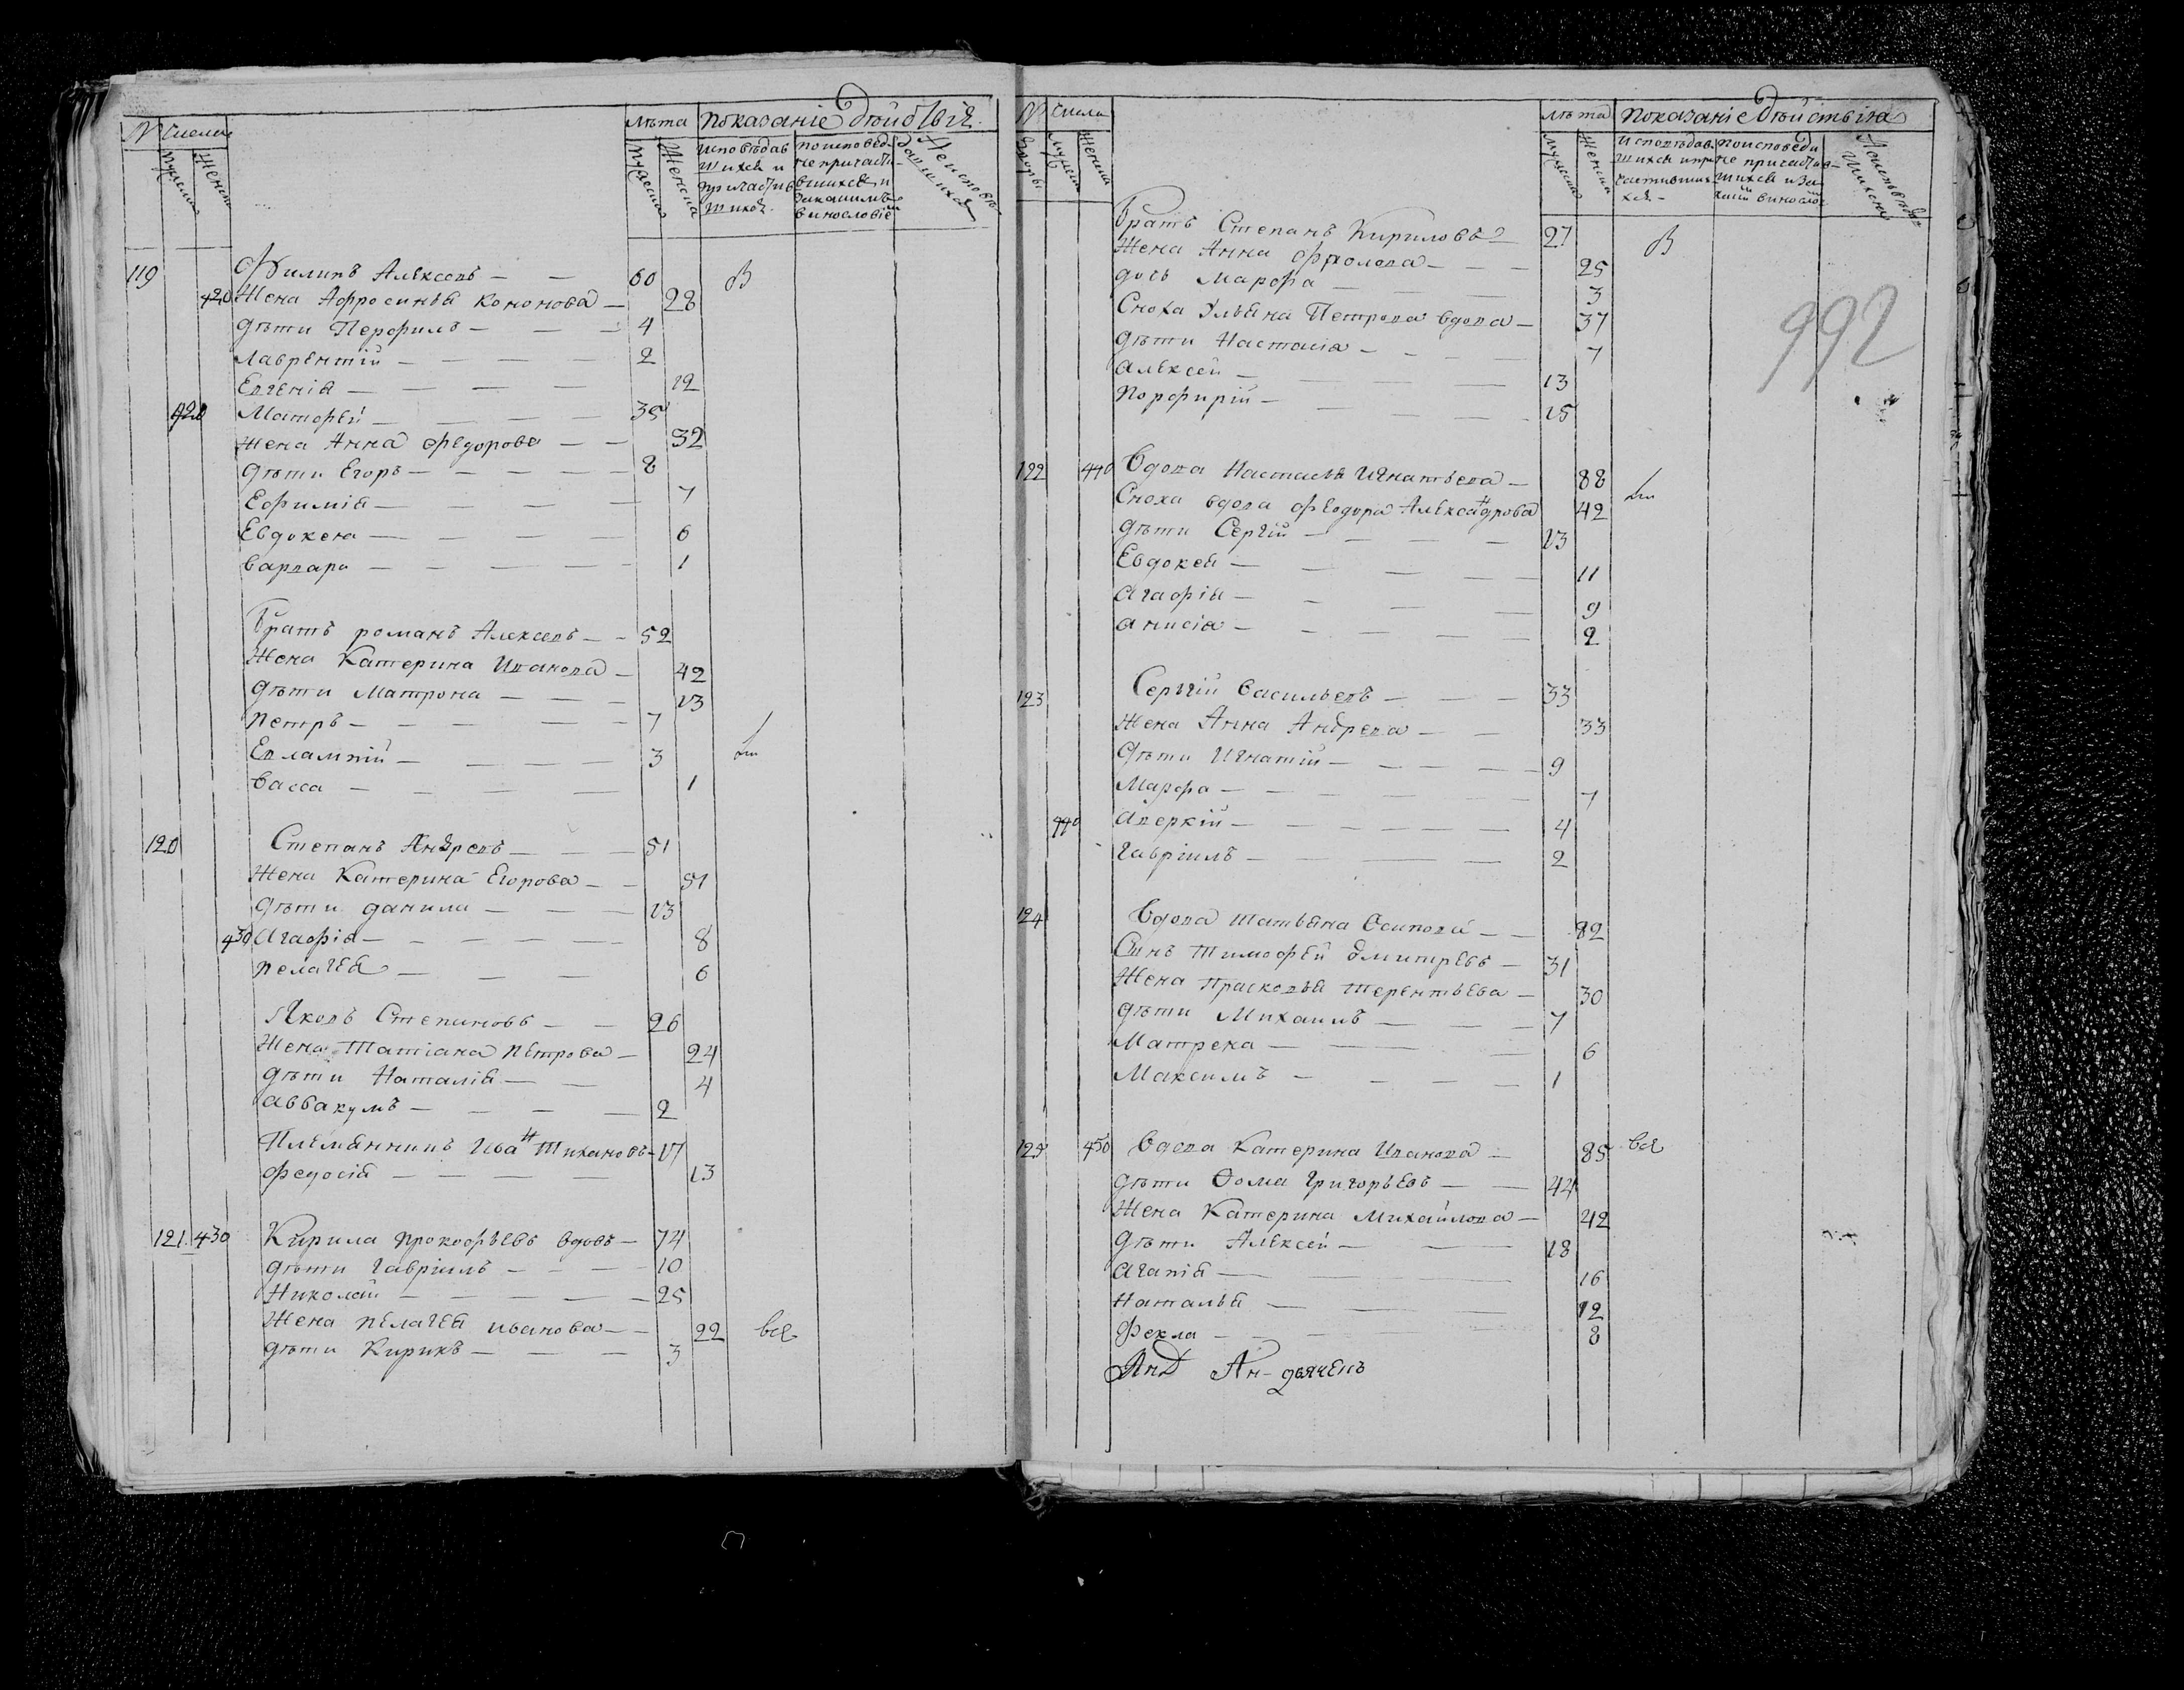 № Числа
Мужеска Женска
лѣта Показаніе Дѣйствія
Мужеска Женска
исповѣдав
шихся и
причастив
шихся
по исповѣд
не причасти
вшихся и
за каким
винословіем
Неисповѣ
давшихся
119 Филипъ Алексеевъ — — 60 В
420 Жена Афросинья Кононова — 28
дѣти Перфилъ — — — 4
Лаврентій — — — — 2
Евгенія — — — — 12
420 Матфей — — — — 35
Жена Анна Федорова — — 32
дѣти Егоръ — — — — — 8
Ефимія — — — — 7
Евдокея — — — — 6
варвара — — — — — 1
Братъ романъ Алексеевъ — — 52
Жена Катерина Иванова — 42
дѣти Матрона — — — 13
петръ — — — — — 7
Евлампій — — — — 3
васса — — — — 1
120 Степанъ Андреевъ — — 51
Жена Катерина Егорова — — 51
дѣти данила — — — 13
430 Агафія — — — — — 8
пелагея — — — 6
Яковъ Степановъ — — 26
Жена Татіана Петрова — 24
дѣти Наталія — — 4
аввакумъ — — — — 2
Племянникъ Иван Тихановъ — 17
федосія — — — — 13
121 430 Кирила прокофьевъ вдовъ — 74
дѣти гавріилъ — — — 10
Николай — — — — — 25
Жена пелагея иванова — — 22 вся
дѣти Кирикъ — — — 3
№ Числа
Дворы Мужеск Женска
лѣта Показаніе Дѣйствія
Мужеска Женска
исповѣдав
шихся и при
частивших
ся —
По исповѣди
не причастив
шихся и за
каким винослов
Неисповѣдав
шихся
992
Братъ Степанъ Кириловъ — 27 В
Жена Анна Фролова — — — 25
дочь Марфа — — 3
Сноха Ульяна Петрова вдова — 37
дѣти Настасія — — — — 7
алексей — — — — 13
порфирій — — — — 15
122 440 Вдова Настасья Игнатьева — 88
Сноха вдова феодора Александрова 42
дѣти Сергій — — — — 13
Евдокея — — — — 11
агафія — — — 9
анисія — — — — — 2
123 Сергій Васильевъ — — — 33
Жена Анна Андреева — — 33
дѣти Игнатій — — — — — 9
Марфа — — — — — — 7
440 аверкій — — — — — — 4
гавріилъ — — — — 2
124 Вдова татьяна Осипова — — 82
Сынъ тимофей Дмитревъ — 31
Жена прасковья терентьева — 30
дѣти Михаилъ — — — 7
Матрена — — — 6
Максимъ — — — — 1
125 450 Вдова Катерина Иванова — 85 вся
дѣти Фома григорьевъ — — 44
Жена Катерина Михайлова — 42
дѣти Алексей — — 18
агапія — — — 16
Наталья — — — 12
Фекла — — — 8
Ан- дьяченъ